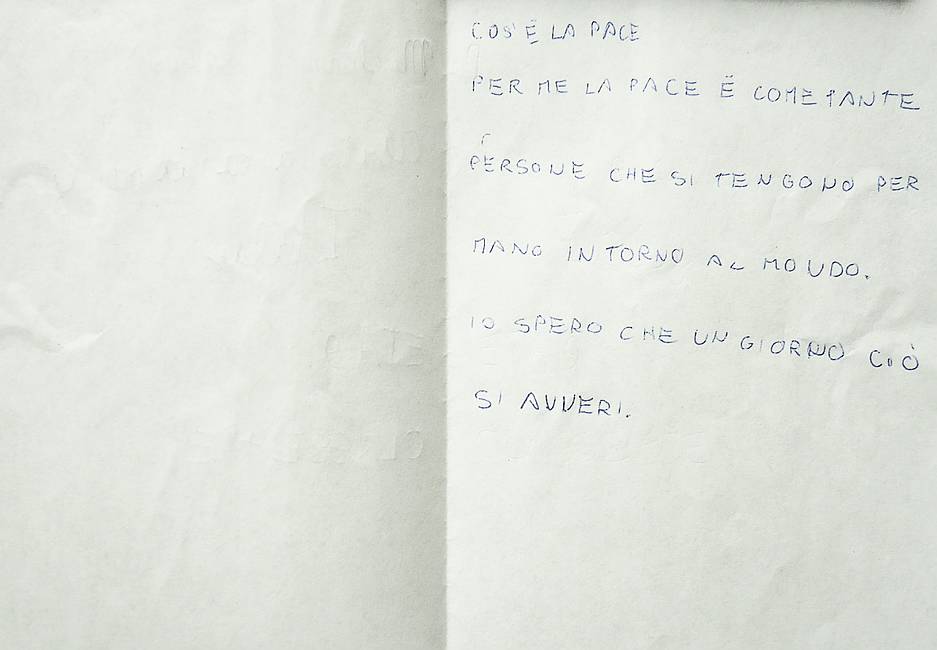 COS'È LA PACE
PER ME LA PACE È COME TANTE
PERSONE CHE SI TENGONO PER
MANO INTORNO AL MONDO.
IO SPERO CHE UN GIORNO CIÒ
SI AVVERI.